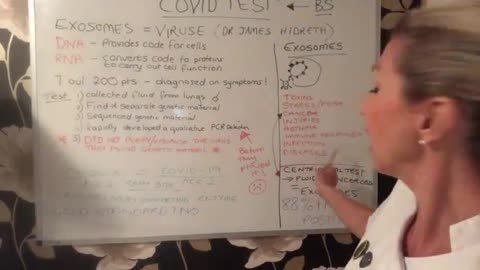 COVID TEST ← BS
EXOSOMES = VIRUSE (DR JAMES HIDRETH)
DNA - Provides code for cells
RNA - converts code to proteins
to carry out cell function
7 out 200 pts - diagnosed on symptoms!
Test
1) collected fluid from lungs
2) Find a separate genetic material
3) Sequenced genetic material
4) Rapidly developed a qualitative PCR Detection
* 5) DID NOT PURIFY THE VIRUS
THEY FOUND GENETIC MATERIAL *
Before
they
COVID-19
ACE 2
ENZYME
GOLD STANDARD? NO
EXOSOMES
TOXINS
STRESS/FEAR
CANCER
INJURIES
ASTHMA
IMMUNE
INFECTION
DISEASES
TEST
→ FLUID
= EXOSOMES
88%